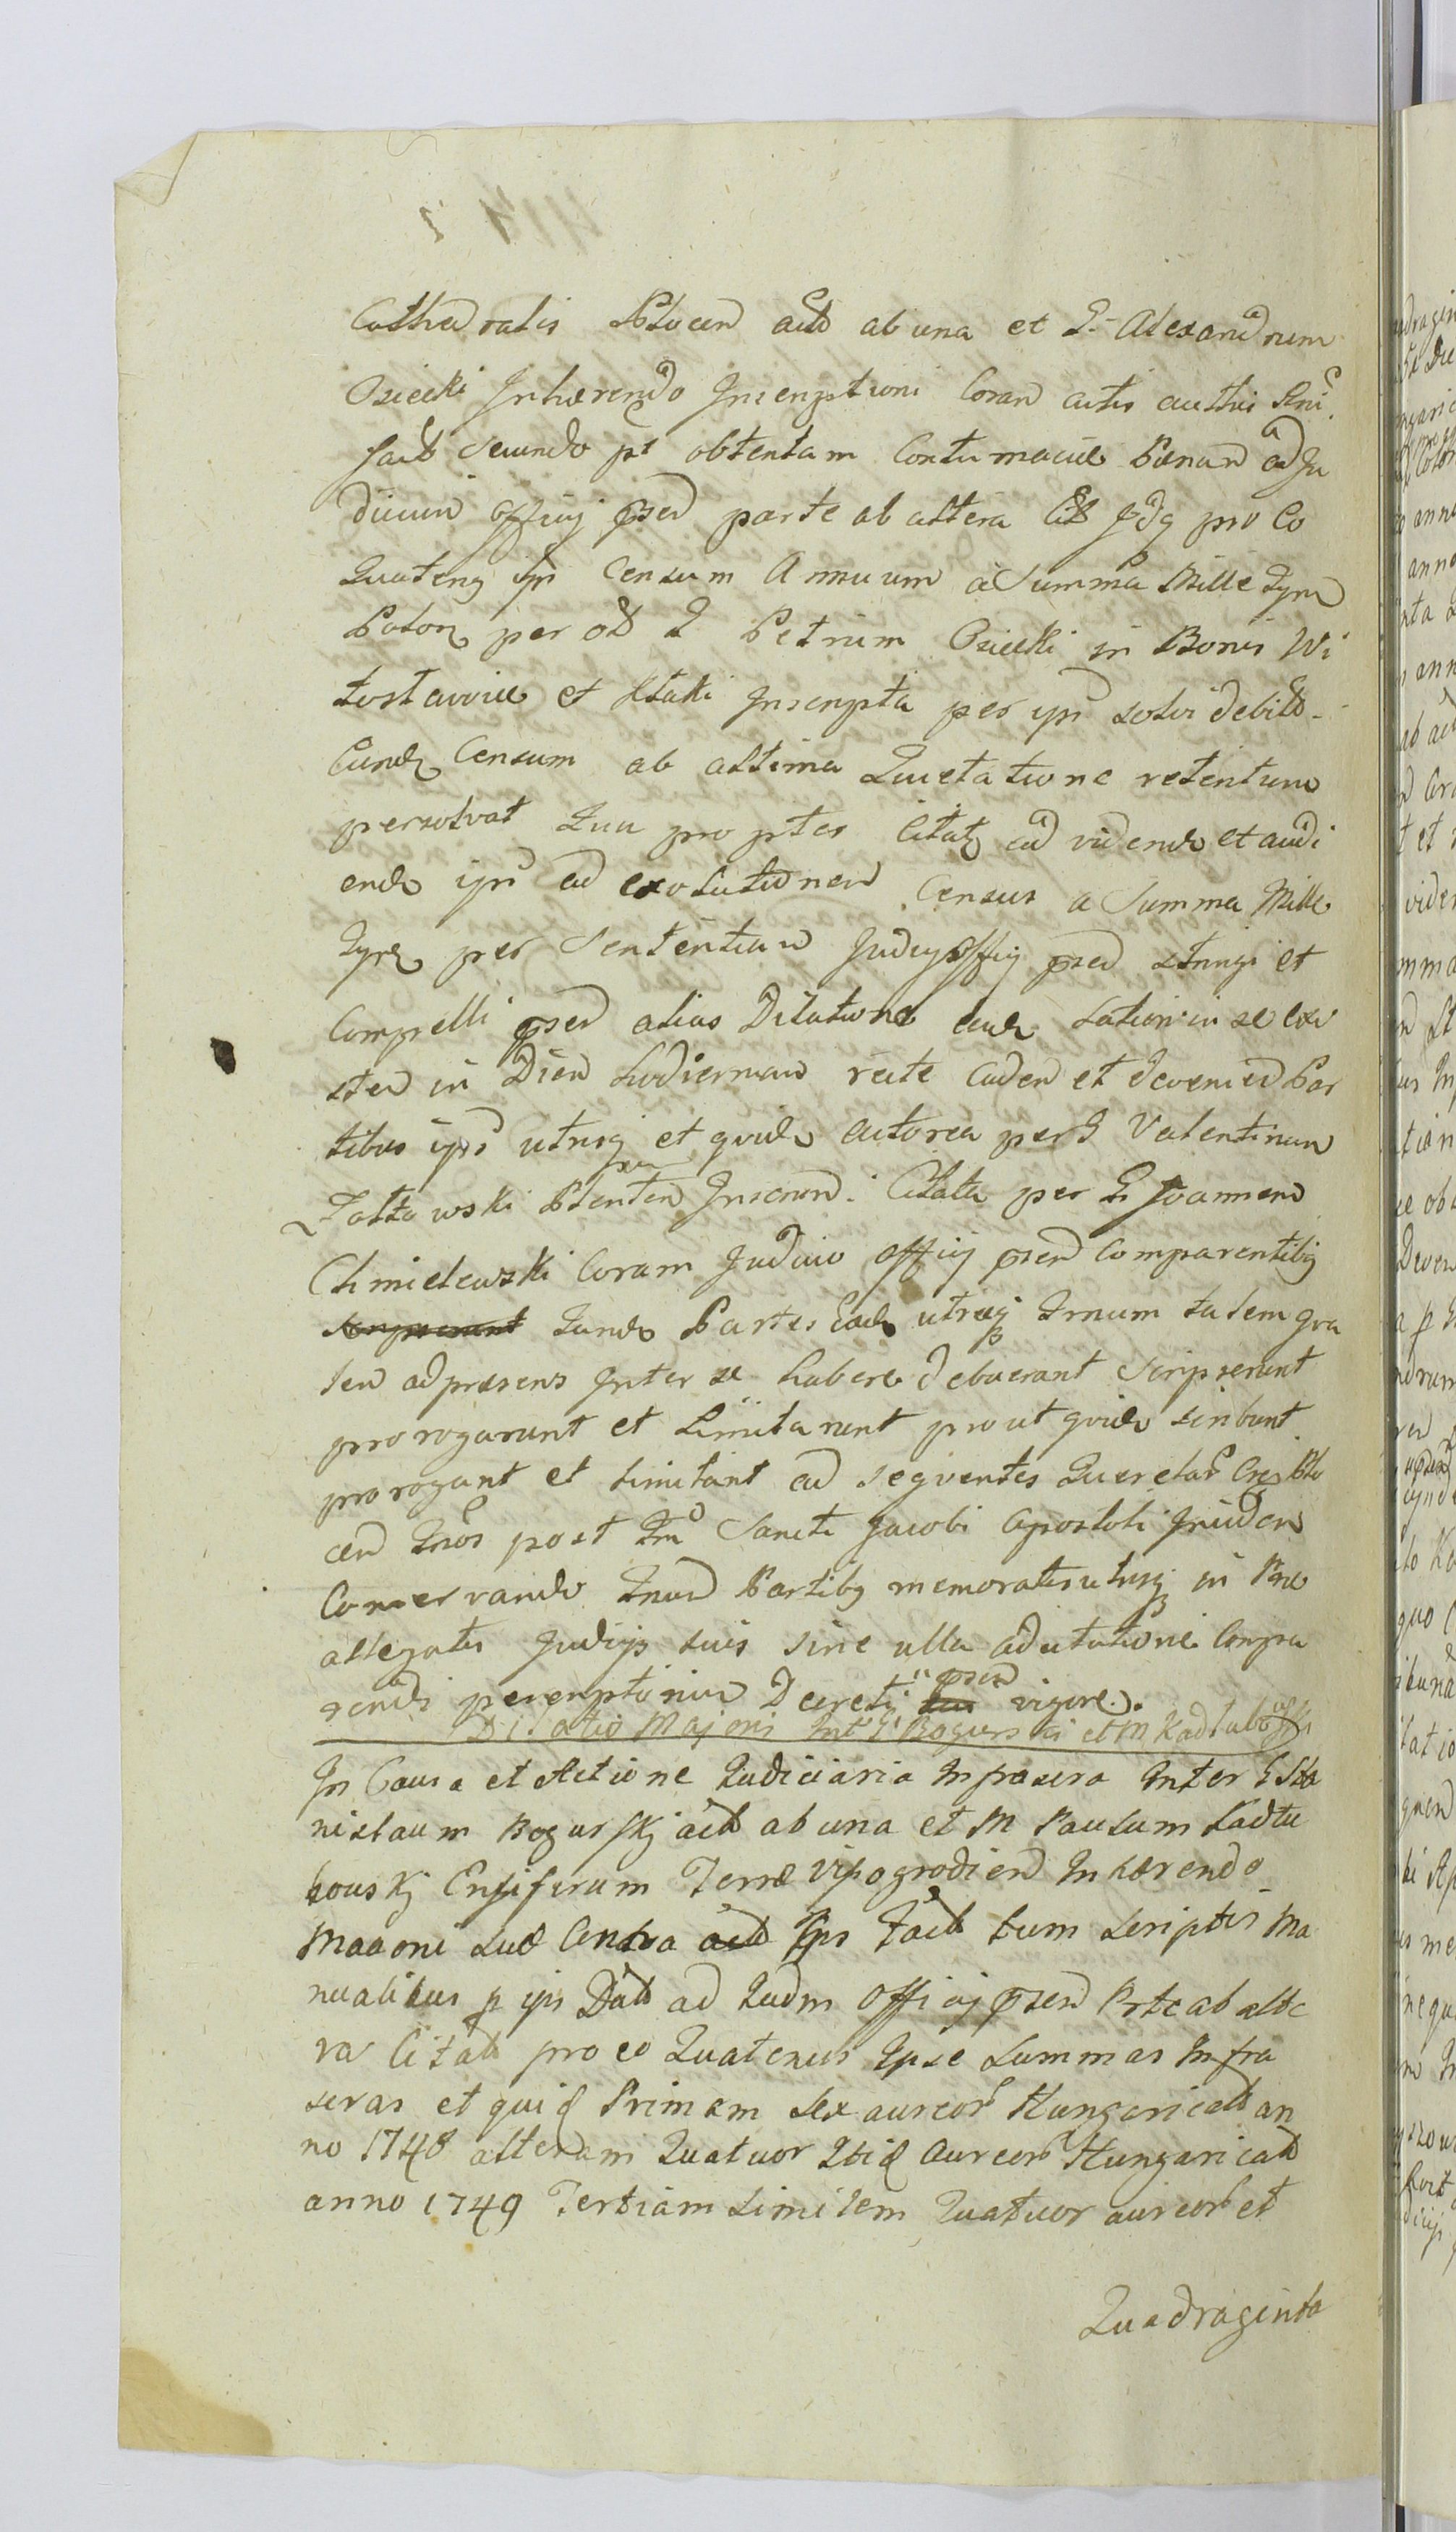 Cathedralis Plocen act ab una et G. Alexandrum
Osiecki Inhærendo Inscriptioni Coram actis
fact secundo pt obtentam Contumaciæ Pænam ad Ju
dicium offcij psen parte ab altera Cit pdq pro Eo
Quateng ip Censum Annuum a Summa Mille Tyn
Polon per ol G Petrum Osiecki in Bonis Wi
tostawice et Ktaki Inscripta per ips solvi debit
Eund Censum ab altima Quietatione retentum
persolvat Quu propter Citat ad videnda et audi
enda ips ad exolutionem Census a Summa Mille
per Sententiam Judicij Officij psen stringi et
Compelli psen alias Dilatione
sten in Diem Hodiernam recte Caden et devenien Par
tibus ips utrisq et quide actorea per G Valentinum
Plenten Inscrium. Citata per G Joannem
Chmielewski Coram Judicio Officij psen Comparentibg
Quæ Partes Ead utræq Trnum talem qva
lem adpræsens Inter se habere debuerant Scripserunt
prorogarunt et Limitarunt prout quide scribunt
prorogant et limitant ad seqventes Querelar Cres Plo
cen Trnos post Fm Sancti Jacobi Apostoli Inciden
Conservando Trnum Partibg memoratis utrisq in Præ
allegatis Judicijs suis sine ulla adcitatione Compa
rendi peremptorium Decreti psen vigore.
Dilatio Majoris Int G Bogurski et M Kadłubowski
In Causa et Actione Judiciaria Infrascra Inter G Sta
nislaum Bogurskj act ab una et M Paulum Kadłu
bouskj Ensiferum Terræ Vissogrodien Inhærendo
Maaoni suæ Contra act Ips Fact tum scriptis Ma
nualibus p ips Dat ad Judm Officij psen Prte ab alte
ra Citat pro eo Quatenus Ipse Summas Infra
scras et quid Primam sex aureor Hungarical an
no 1748 alteram Quatuor Itid Aureor Hungarical
anno 1749 Tertiam similem Quatuor aureor et
Quadraginta